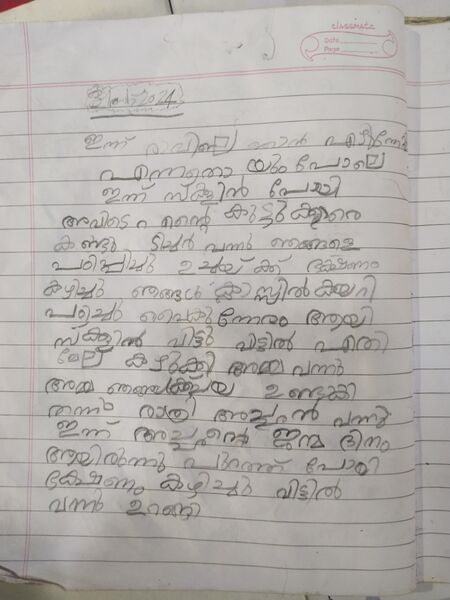 classmate
Date
Page
ഇന്ന് രാവിലെ ഞാൻ
എന്നത്തെ യും പോലെ
ഇന്ന് സ്കൂളിൽ പോയി
അവിടെ എന്റെ കൂട്ടുകാരെ
കണ്ടു ടീച്ചർ വന്നു ഞങ്ങളെ
പഠിപ്പിച്ചു ഉച്ചയ് ക്ക് ഭക്ഷണം
കഴിച്ചു ഞങ്ങൾ ക്ലാസ്സിൽ കയറി
പഠിച്ചു വൈകു ന്നേരം ആയി
സ്കൂളിൽ വിട്ടു വിട്ടിൽ എത്തി
മേല് കഴുക്കി അമ്മ വന്നു
അമ്മ ഉണ്ടക്കി
തന്നു രാത്രി അച്ഛൻ വന്നു
ഇന്ന് അച്ഛന്റെ ജന്മ ദിനം
ആയിരുന്നു പുറത്ത് പോയി
ഭക്ഷണം കഴിച്ചു വിട്ടിൽ
വന്നു ഉറങ്ങി